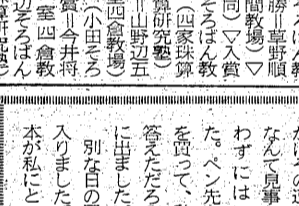 勝＝草野順
間教場）▽
同）▽入賞
そろばん教
（四家珠算
算研究塾）
＝山野辺五
四倉教場）
（小田そろ
賞＝今井将
室四倉教
辺そろばん
なんて見事
わずには
た。ペン先
を買って、
答えただろ
に出ました
別な日の
入りました
本が私にと